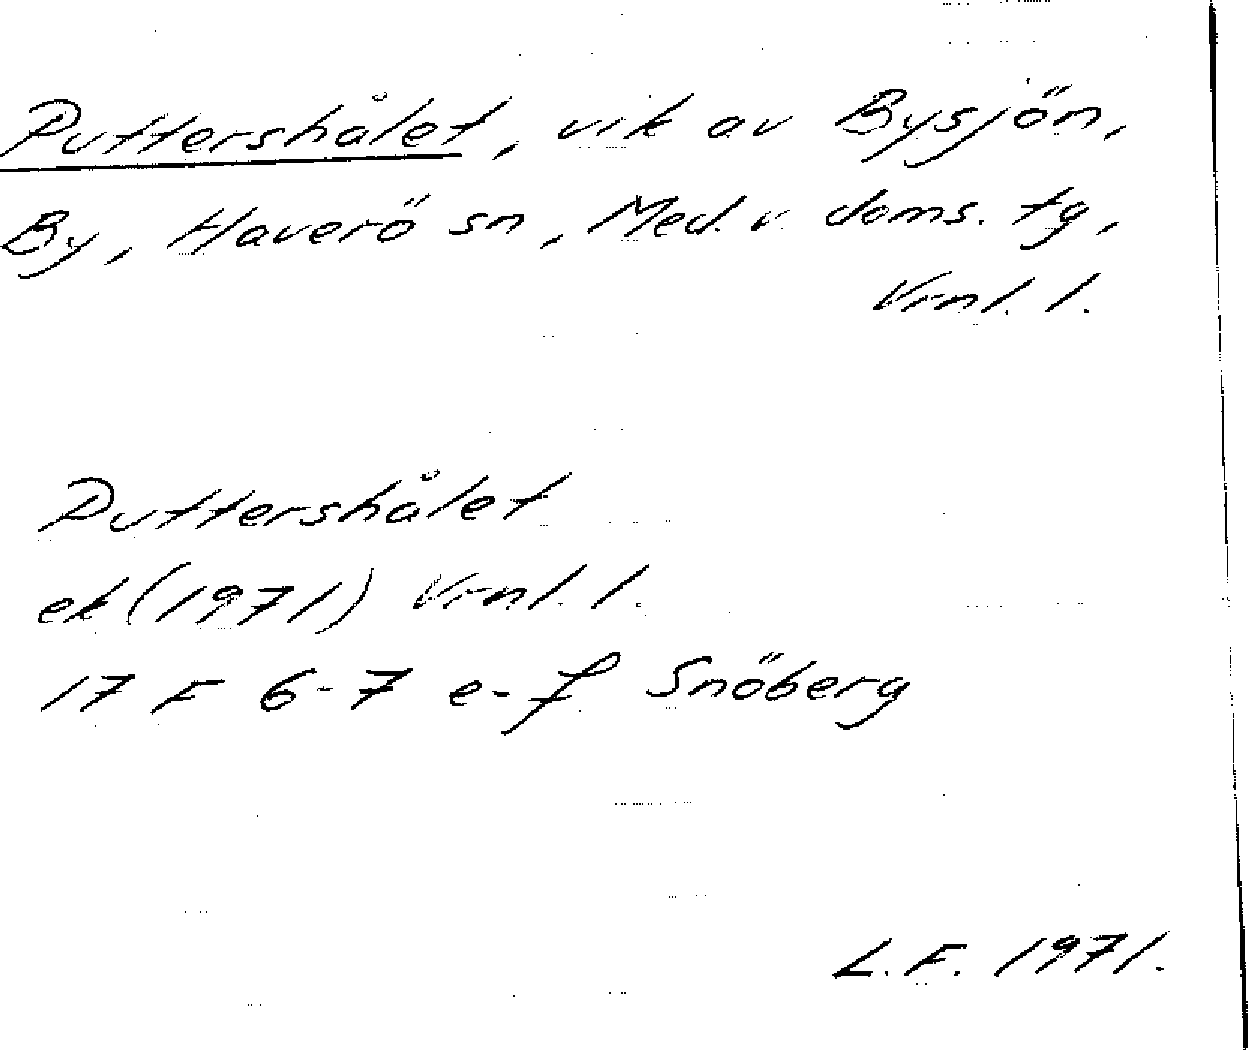 Puttershålet, vik av Bysjön,
By, Haverö sn, Med. v. doms. tg,
Vrnl. l.
Puttershålet
ek (1971) Vrnl. l.
17 F 6-7 e-f Snöberg
L.F. 1971.